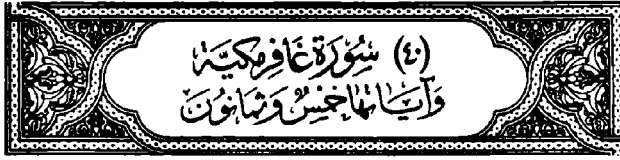 (٤٠) سُوْرَة غَافِر مَكِيَّة
وَآيَاتُهَا خَمْسٌ وَثَمَانُونَ